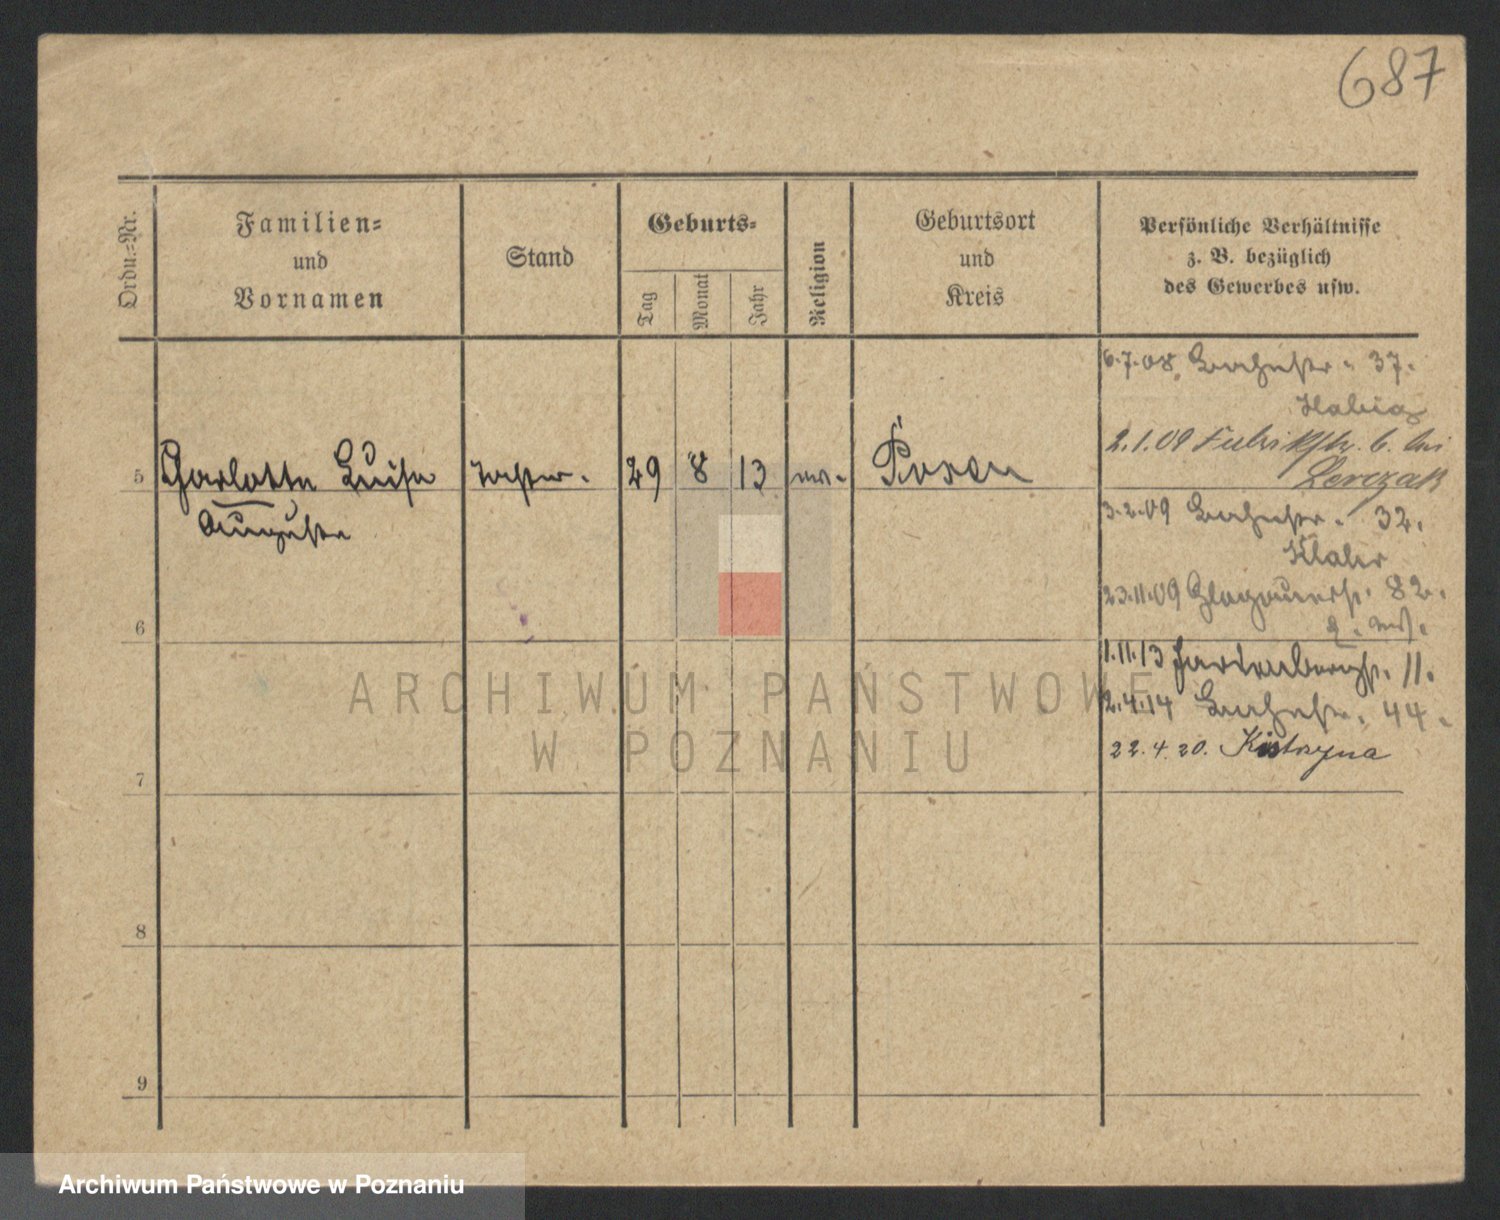 687
Ordn.=Nr.
Familien=
und
Vornamen
Stand
Geburts=
Tag
Monat
Jahr
Religion
Geburtsort
und
Kreis
Persönliche Verhältnisse
z. B. bezüglich
des Gewerbes usw.
6.7.08. Bachstr. 37.
2.1.09 Fabrikstr. 6. bei
Lerczak
5 Charlotte Luise Tochter. 29 8 13 ev. Posen
Auguste
3.2.09 Bachstr. 32.
23.11.09 Glogauerstr. 82.
6
1.11.13 11.
2.4.14 44.
22.4.20. Kistrzyna
7
8
9
ARCHIWUM PAŃSTWOWE
W POZNANIU
Archiwum Państwowe w Poznaniu